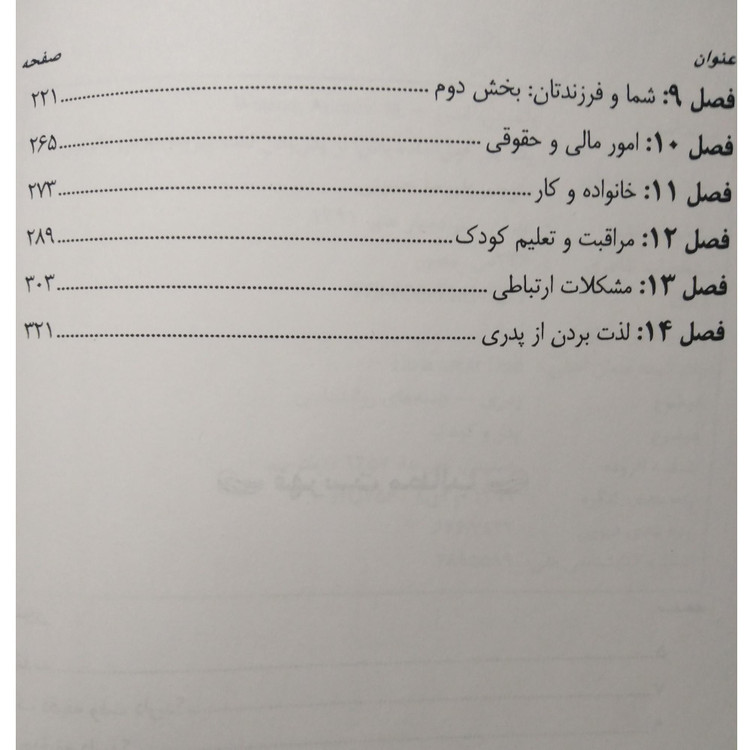 عنوان صفحه
فصل ۹: شما و فرزندتان: بخش دوم ........................................ ۲۲۱
فصل ۱۰: امور مالی و حقوقی ........................................ ۲۶۵
فصل ۱۱: خانواده و کار ........................................ ۲۷۳
فصل ۱۲: مراقبت و تعلیم کودک ........................................ ۲۸۹
فصل ۱۳: مشکلات ارتباطی ........................................ ۳۰۳
فصل ۱۴: لذت بردن از پدری ........................................ ۳۲۱